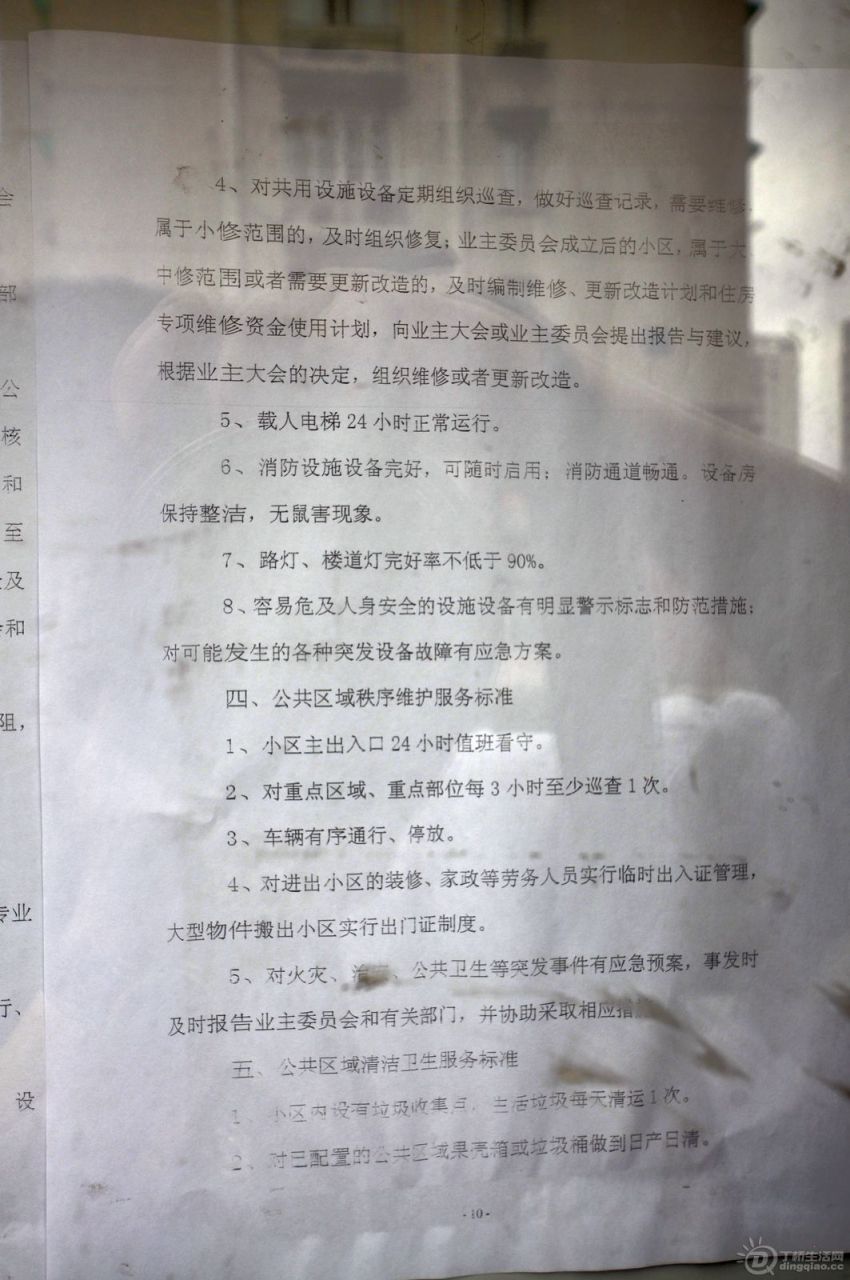 4、对共用设施设备定期组织巡查，做好巡查记录，需要维修，
属于小修范围的，及时组织修复；业主委员会成立后的小区，属于大、
中修范围或者需要更新改造的，及时编制维修、更新改造计划和住房
专项维修资金使用计划，向业主大会或业主委员会提出报告与建议，
根据业主大会的决定，组织维修或者更新改造。
5、载人电梯 24 小时正常运行。
6、消防设施设备完好，可随时启用；消防通道畅通。设备房
保持整洁，无鼠害现象。
7、路灯、楼道灯完好率不低于 90%。
8、容易危及人身安全的设施设备有明显警示标志和防范措施；
对可能发生的各种突发设备故障有应急方案。
四、公共区域秩序维护服务标准
1、小区主出入口 24 小时值班看守。
2、对重点区域、重点部位每 3 小时至少巡查 1 次。
3、车辆有序通行、停放。
4、对进出小区的装修、家政等劳务人员实行临时出入证管理，
大型物件搬出小区实行出门证制度。
5、对火灾、治、公共卫生等突发事件有应急预案，事发时
及时报告业主委员会和有关部门，并协助采取相应措
五、公共区域清洁卫生服务标准
1、小区内设有垃圾收集点，生活垃圾每天清运 1 次。
2、对已配置的公共区域果壳箱或垃圾桶做到日产日清。
-10-
会
部
公
核
和
至
及
和
阻，
专业
行、
设
丁桥生活网
dingqiao.cc